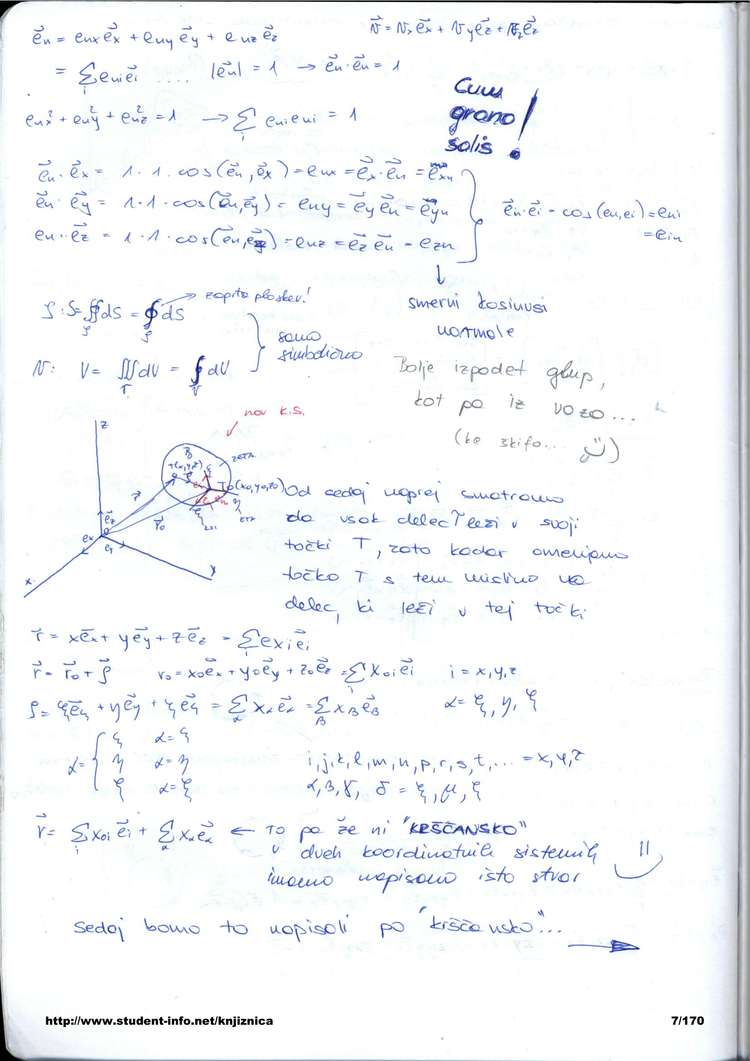 e⃗n = enx e⃗x + eny e⃗y + enz e⃗z
v⃗ = vx e⃗x + vy e⃗z + vz e⃗z
= Σi eni e⃗i .... |e⃗n| = 1 → e⃗n · e⃗n = 1
enx² + eny² + enz² = 1 → Σi eni eni = 1
Cum
grano
salis!
e⃗n · e⃗x = 1 · 1 · cos(e⃗n, e⃗x) = enx = e⃗x · e⃗n = exn
e⃗n · e⃗y = 1 · 1 · cos(e⃗n, e⃗y) = eny = e⃗y e⃗n = eyn
en · e⃗z = 1 · 1 · cos(e⃗n, e⃗z) = enz = e⃗z e⃗n = ezn
e⃗n · e⃗i = cos(en, ei) = eni
= ein
↓
smerni kosinusi
normale
zaprta ploskev!
S = ∯ dS = ∮ dS
V: V = ∭ dV = ∮ dV
samo
simbolično
Bolje izpodet glup,
kot pa iz voza...
nov k.s.
z
ZETA
T(x,y,z)
To(x0,y0,z0)
η
ETA
ξ
KSI
r⃗
r⃗0
e⃗z
ex
ey
x
y
Od sedaj naprej smatramo
da vsak delec leži v svoji
točki T, zato kadar omenjamo
točko T s tem mislimo na
delec, ki leži v tej točki
r⃗ = x e⃗x + y e⃗y + z e⃗z = Σi exi e⃗i
r⃗ = r⃗0 + ρ⃗ r0 = x0 e⃗x + y0 e⃗y + z0 e⃗z = Σi x0i e⃗i i = x, y, z
ρ = ξ e⃗ξ + η e⃗y + ζ e⃗ζ = Σα xα e⃗α = Σβ xβ e⃗β α = ξ, η, ζ
α = { ξ α = ξ
η α = η
ζ α = ζ
i, j, k, l, m, n, p, r, s, t, ... = x, y, z
α, β, γ, δ = ξ, μ, ζ
r⃗ = Σi x0i e⃗i + Σα xα e⃗α ← To pa že ni "KRŠČANSKO"
v dveh koordinatnih sistemih
imamo napisano isto stvar
Sedaj bomo to napisali po "krščansko"...
http://www.student-info.net/knjiznica
7/170